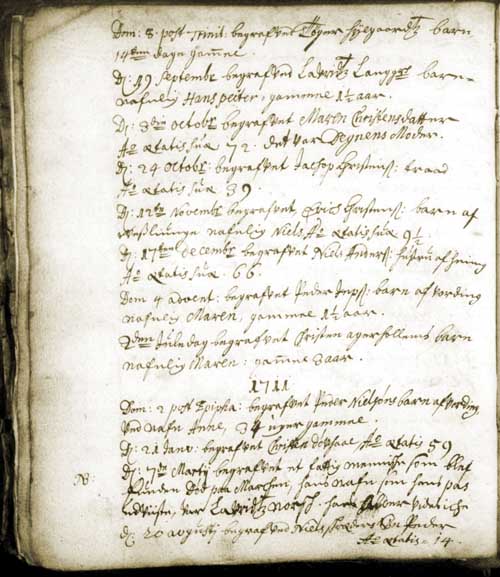 Dom: 8. post Trinit: begrafvet barn
14 dage gamle.
D: 19 Septembr begrafved Lavritz Langgs barn
nafnlig Hans peiter, gammel 1½ aar.
D: 3die octobr begrafvet Maren Christensdatter
Aº ætatis suæ 72. det var Degnens Moder.
D: 24 octobr: begrafvet Jachop Christenss: traad
Aº ætatis suæ 39.
D: 12te Novembr begrafvet Christenss: barn af
nafnlig Niels Aº ætatis suæ 9½
D: 17ten Decembr begrafvet Niels Anderss: hustru af
Aº ætatis suæ 66.
Dom 4 advent: begrafvet Peder Jepss: barn af Vording
nafnlig Maren, gammel 1½ aar.
2den Juledag begrafvet Christen agerhollems barn
nafnlig Maren: gamle 3 aar.
1711
Dom: 2 post Epipha: begrafvet Peder Nielsøns barn af Vording
ved nafn Anne, 34 uger gammel.
D: 21 Janv: begrafvet Aº ætatis 59
NB: D: 7de Martij begrafvet et fattig menniske som blef
funden død paa Marchen, hans nafn som hans pas
udviiste, var Lavritz Norsch.
D: 20 augustij begrafved Niels Søn Peder
Aº ætatis. 14.